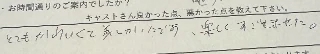 ・お時間通りのご案内でしたか？
キャストさん良かった点、悪かった点を教えて下さい。
とても かわいくて 楽しく すごせました。